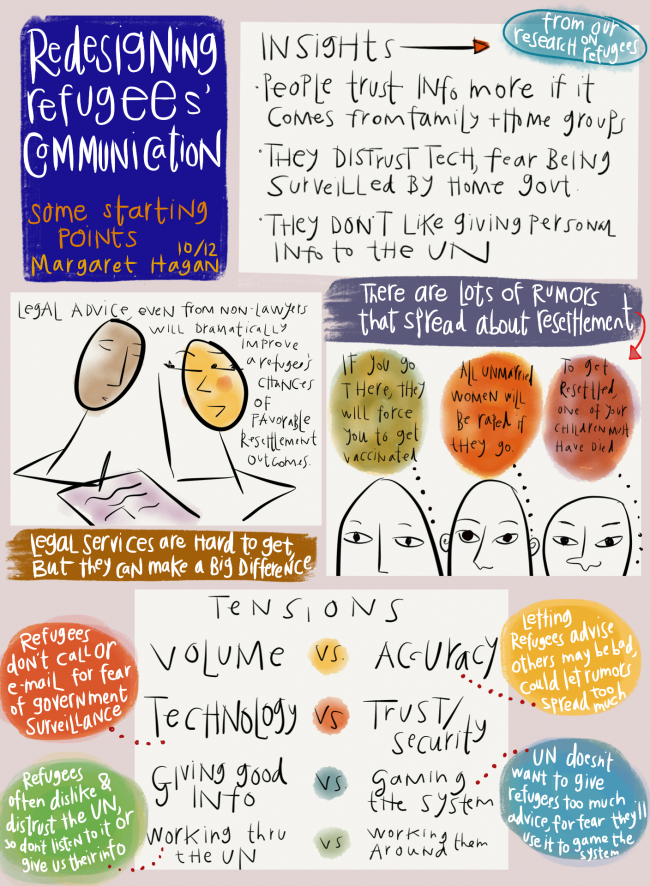 Redesigning
refugees'
Communication
some starting
points
10/12
Margaret Hagan
Insights
from our
research on
refugees
• People trust info more if it
comes from family + home groups
• They distrust tech, fear being
surveilled by home govt.
• They don't like giving personal
info to the UN
Legal advice, even from non-lawyers
will dramatically
improve
a refugee's
chances
of
favorable
resettlement
outcomes.
Legal services are hard to get,
but they can make a big difference
There are lots of rumors
that spread about resettlement
If you go
there, they
will force
you to get
vaccinated
All unmarried
women will
be raped if
they go.
To get
resettled,
one of your
children must
have died.
Tensions
Volume vs. Accuracy
Technology vs Trust/
security
Giving good
info vs gaming
the system
working thru
the UN vs working
around them
Refugees
don't call or
e-mail for fear
of government
surveillance
Letting
refugees advise
others may be bad,
could let rumors
spread too
much
Refugees
often dislike &
distrust the UN,
so don't listen to it or
give us their info
UN doesn't
want to give
refugees too much
advice, for fear they'll
use it to game the
system